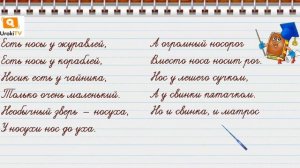 UrokiTV
Есть носы у журавлей,
Есть носы у кораблей,
Носик есть у чайника,
Только очень маленький.
Необычный зверь – носуха,
У носухи нос до уха.
А огромный носорог
Вместо носа носит рог.
Нос у лешего сучком,
А у свинки пятачком.
Но и свинка, и матрос